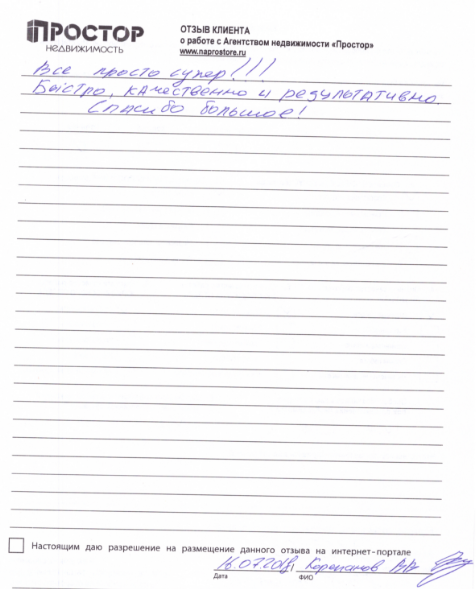 ПРОСТОР
НЕДВИЖИМОСТЬ
ОТЗЫВ КЛИЕНТА
о работе с Агентством недвижимости «Простор»
www.naprostore.ru
Все просто супер!!!
Быстро, качественно и результативно.
Спасибо большое!
Настоящим даю разрешение на размещение данного отзыва на интернет-портале
16.07.2018г.
Дата
ФИО